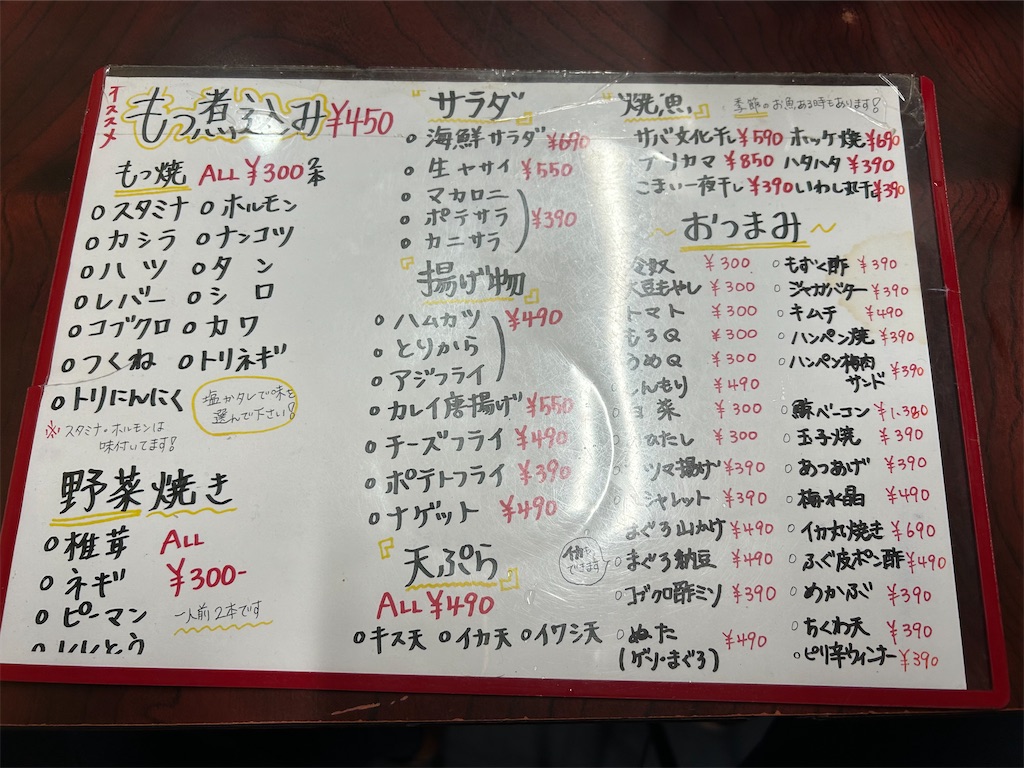 オススメ
もつ煮込み ¥450
もつ焼 ALL ¥300 2本
○スタミナ ○ホルモン
○カシラ ○ナンコツ
○ハツ ○タン
○レバー ○シロ
○コブクロ ○カワ
○つくね ○トリネギ
○トリにんにく
塩かタレで味を
選んで下さい!
※スタミナ・ホルモンは
味付いてます!
野菜焼き
○椎茸
○ネギ
○ピーマン
○ししとう
ALL
¥300-
一人前2本です
サラダ
○海鮮サラダ ¥690
○生ヤサイ ¥550
○マカロニ
○ポテサラ
○カニサラ
¥390
揚げ物
○ハムカツ
○とりから
○アジフライ
¥490
○カレイ唐揚げ ¥550
○チーズフライ ¥490
○ポテトフライ ¥390
○ナゲット ¥490
天ぷら
ALL ¥490
○キス天 ○イカ天 ○イワシ天
焼魚
季節のお魚ある時もあります!
サバ文化干し ¥590 ホッケ焼 ¥690
ブリカマ ¥850 ハタハタ ¥390
こまい一夜干し ¥390 いわし丸干し ¥390
〜おつまみ〜
冷奴 ¥300
大豆もやし ¥300
トマト ¥300
もろQ ¥300
うめQ ¥300
しんもり ¥490
白菜 ¥300
ひたし ¥300
ツマ揚げ ¥390
シャレット ¥390
まぐろ山かけ ¥490
○まぐろ納豆 ¥490
○コブクロ酢ミソ ¥390
○ぬた
(ゲソ・まぐろ)
¥490
○もずく酢 ¥390
○ジャガバター ¥390
○キムチ ¥490
○ハンペン焼 ¥390
○ハンペン梅肉
サンド ¥390
○鯨ベーコン ¥1.380
○玉子焼 ¥390
○あつあげ ¥390
○梅水晶 ¥490
○イカ丸焼き ¥690
○ふぐ皮ポン酢 ¥490
○めかぶ ¥390
○ちくわ天 ¥390
○ピリ辛ウィンナー ¥390